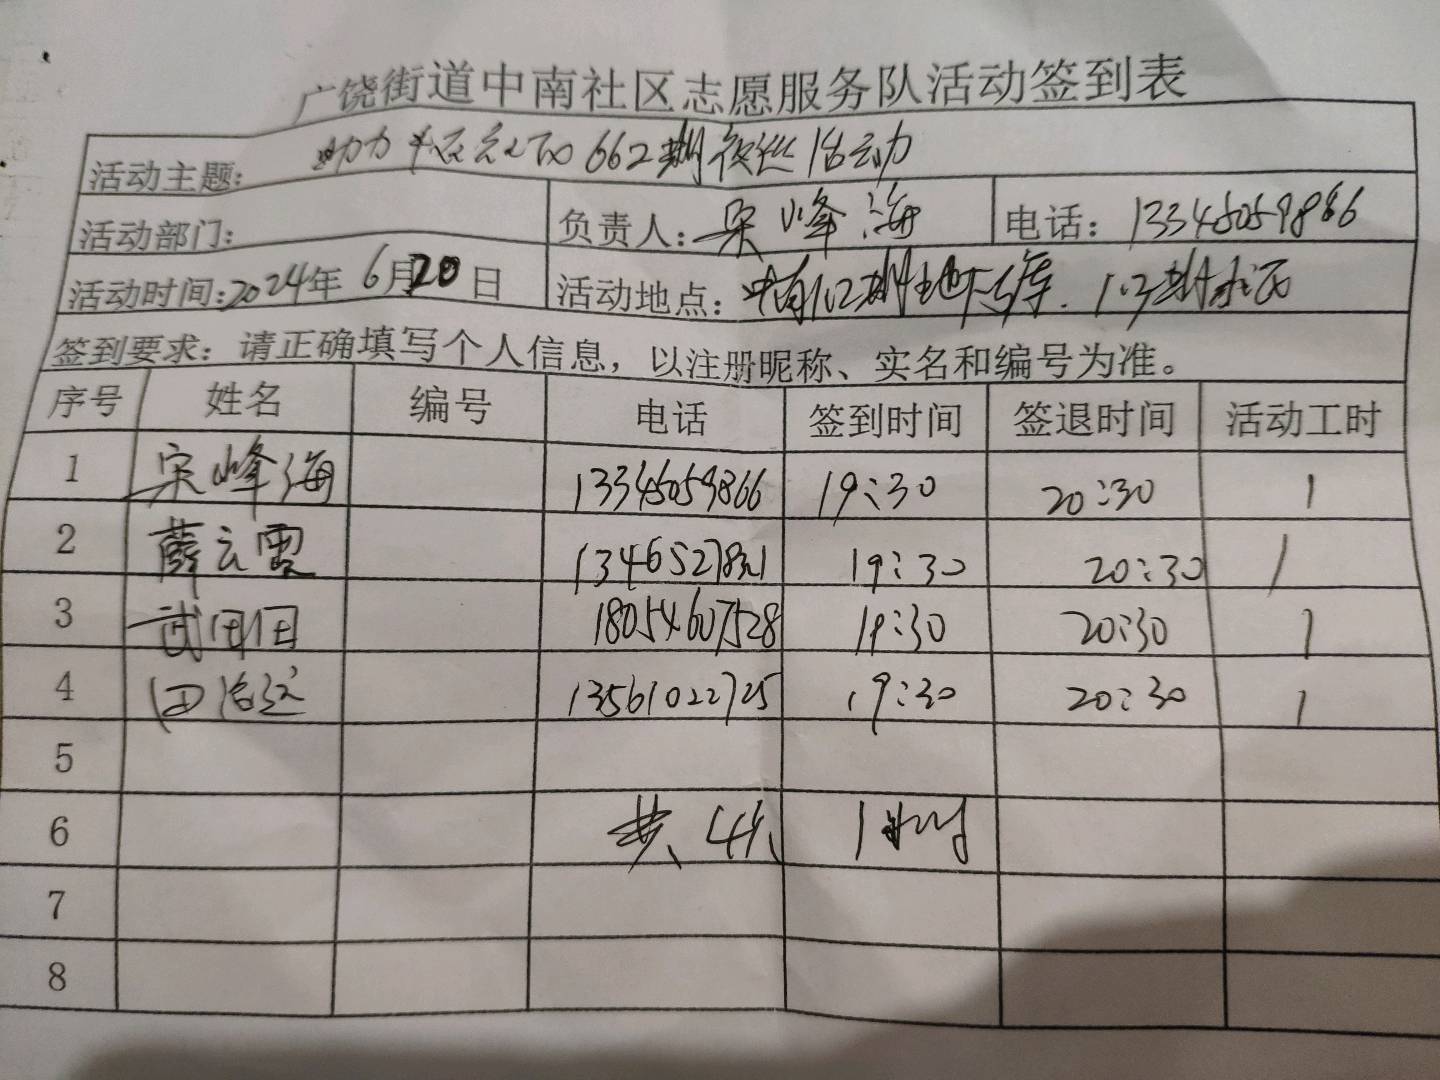 广饶街道中南社区志愿服务队活动签到表
活动主题: 助力 662期夜巡活动
活动部门:
负责人: 宋峰海 电话: 13345059866
活动时间: 2024年6月20日 活动地点: 中南1.2期地下车库.
签到要求: 请正确填写个人信息,以注册昵称、实名和编号为准。
序号 姓名 编号 电话 签到时间 签退时间 活动工时
1 宋峰海 13345059866 19:30 20:30 1
2 薛云霞 19:30 20:30 1
3 武田田 18054607528 19:30 20:30 1
4 13561022725 19:30 20:30 1
5
6 共4人 1小时
7
8